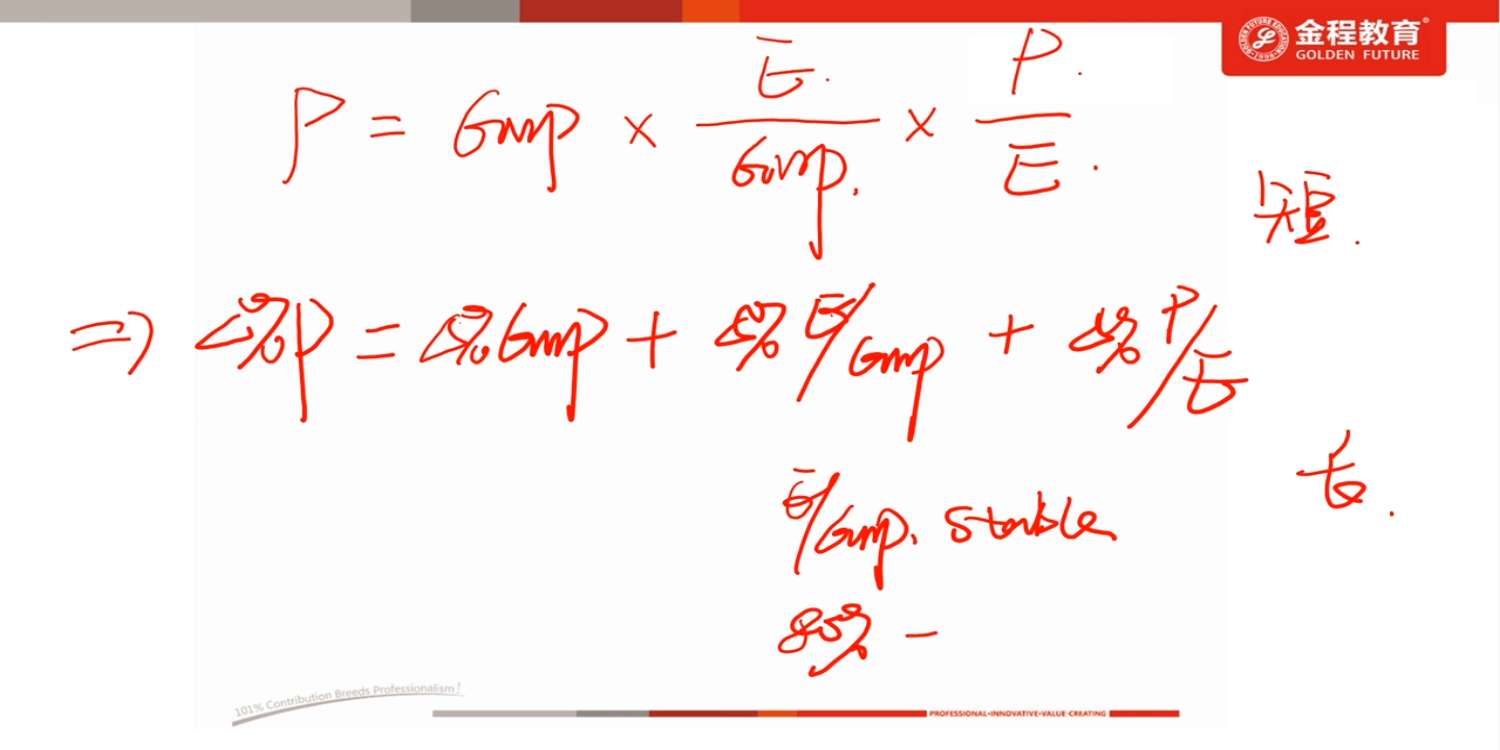 金程教育®
GOLDEN FUTURE
P = GDP × E/GDP × P/E
短.
⇒ Δ%P = Δ%GDP + Δ%E/GDP + Δ%P/E
长.
E/GDP. stable
80% -
101% Contribution Breeds Professionalism!
PROFESSIONAL•INNOVATIVE•VALUE-CREATING